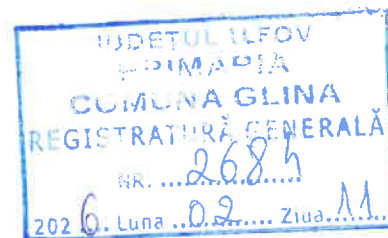 JUDEȚUL ILFOV
PRIMĂRIA
COMUNA GLINA
REGISTRATURĂ GENERALĂ
NR. ....2684
2026. Luna ..02.... Ziua..11..